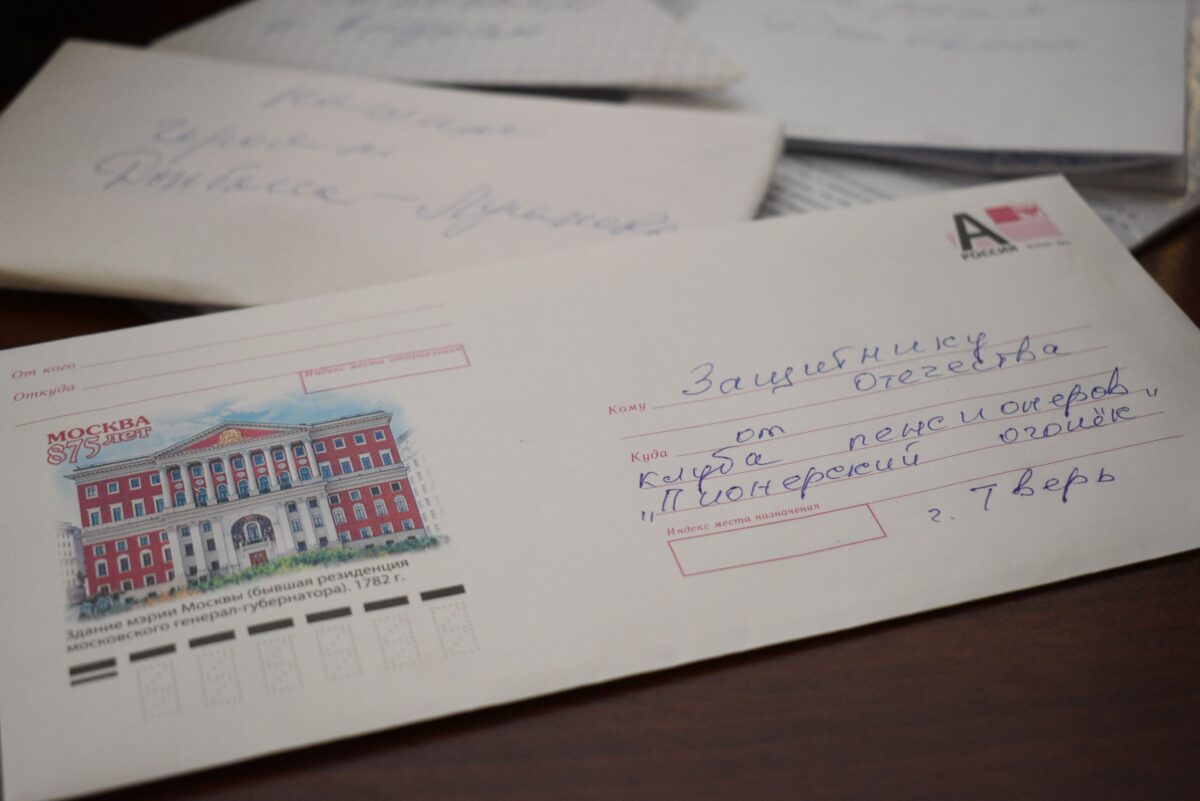 героям
Донбасса —
От кого
Откуда
Индекс места отправления
МОСКВА
875 лет
Здание мэрии Москвы (бывшая резиденция
московского генерал-губернатора). 1782 г.
А
РОССИЯ
Кому Защитнику
Отечества
Куда от
клуба пенсионеров
„Пионерский огонёк"
г. Тверь
Индекс места назначения